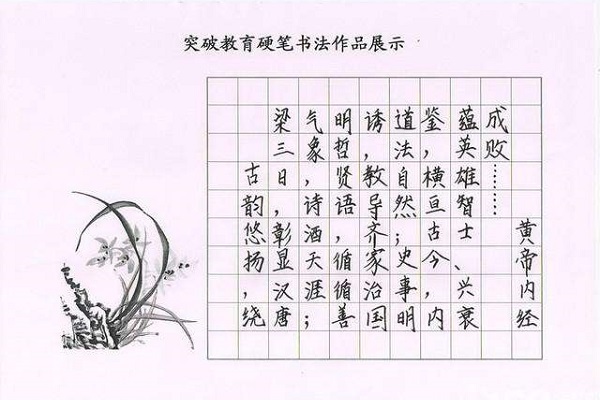 突破教育硬笔书法作品展示
古韵悠扬，绕
梁三日，彰显汉唐
气象，诗酒天涯；
明哲贤语，循循善
诱，教导齐家治国
道法自然；史事明
鉴，横亘古今，内
蕴英雄智士、兴衰
成败……
黄帝内经